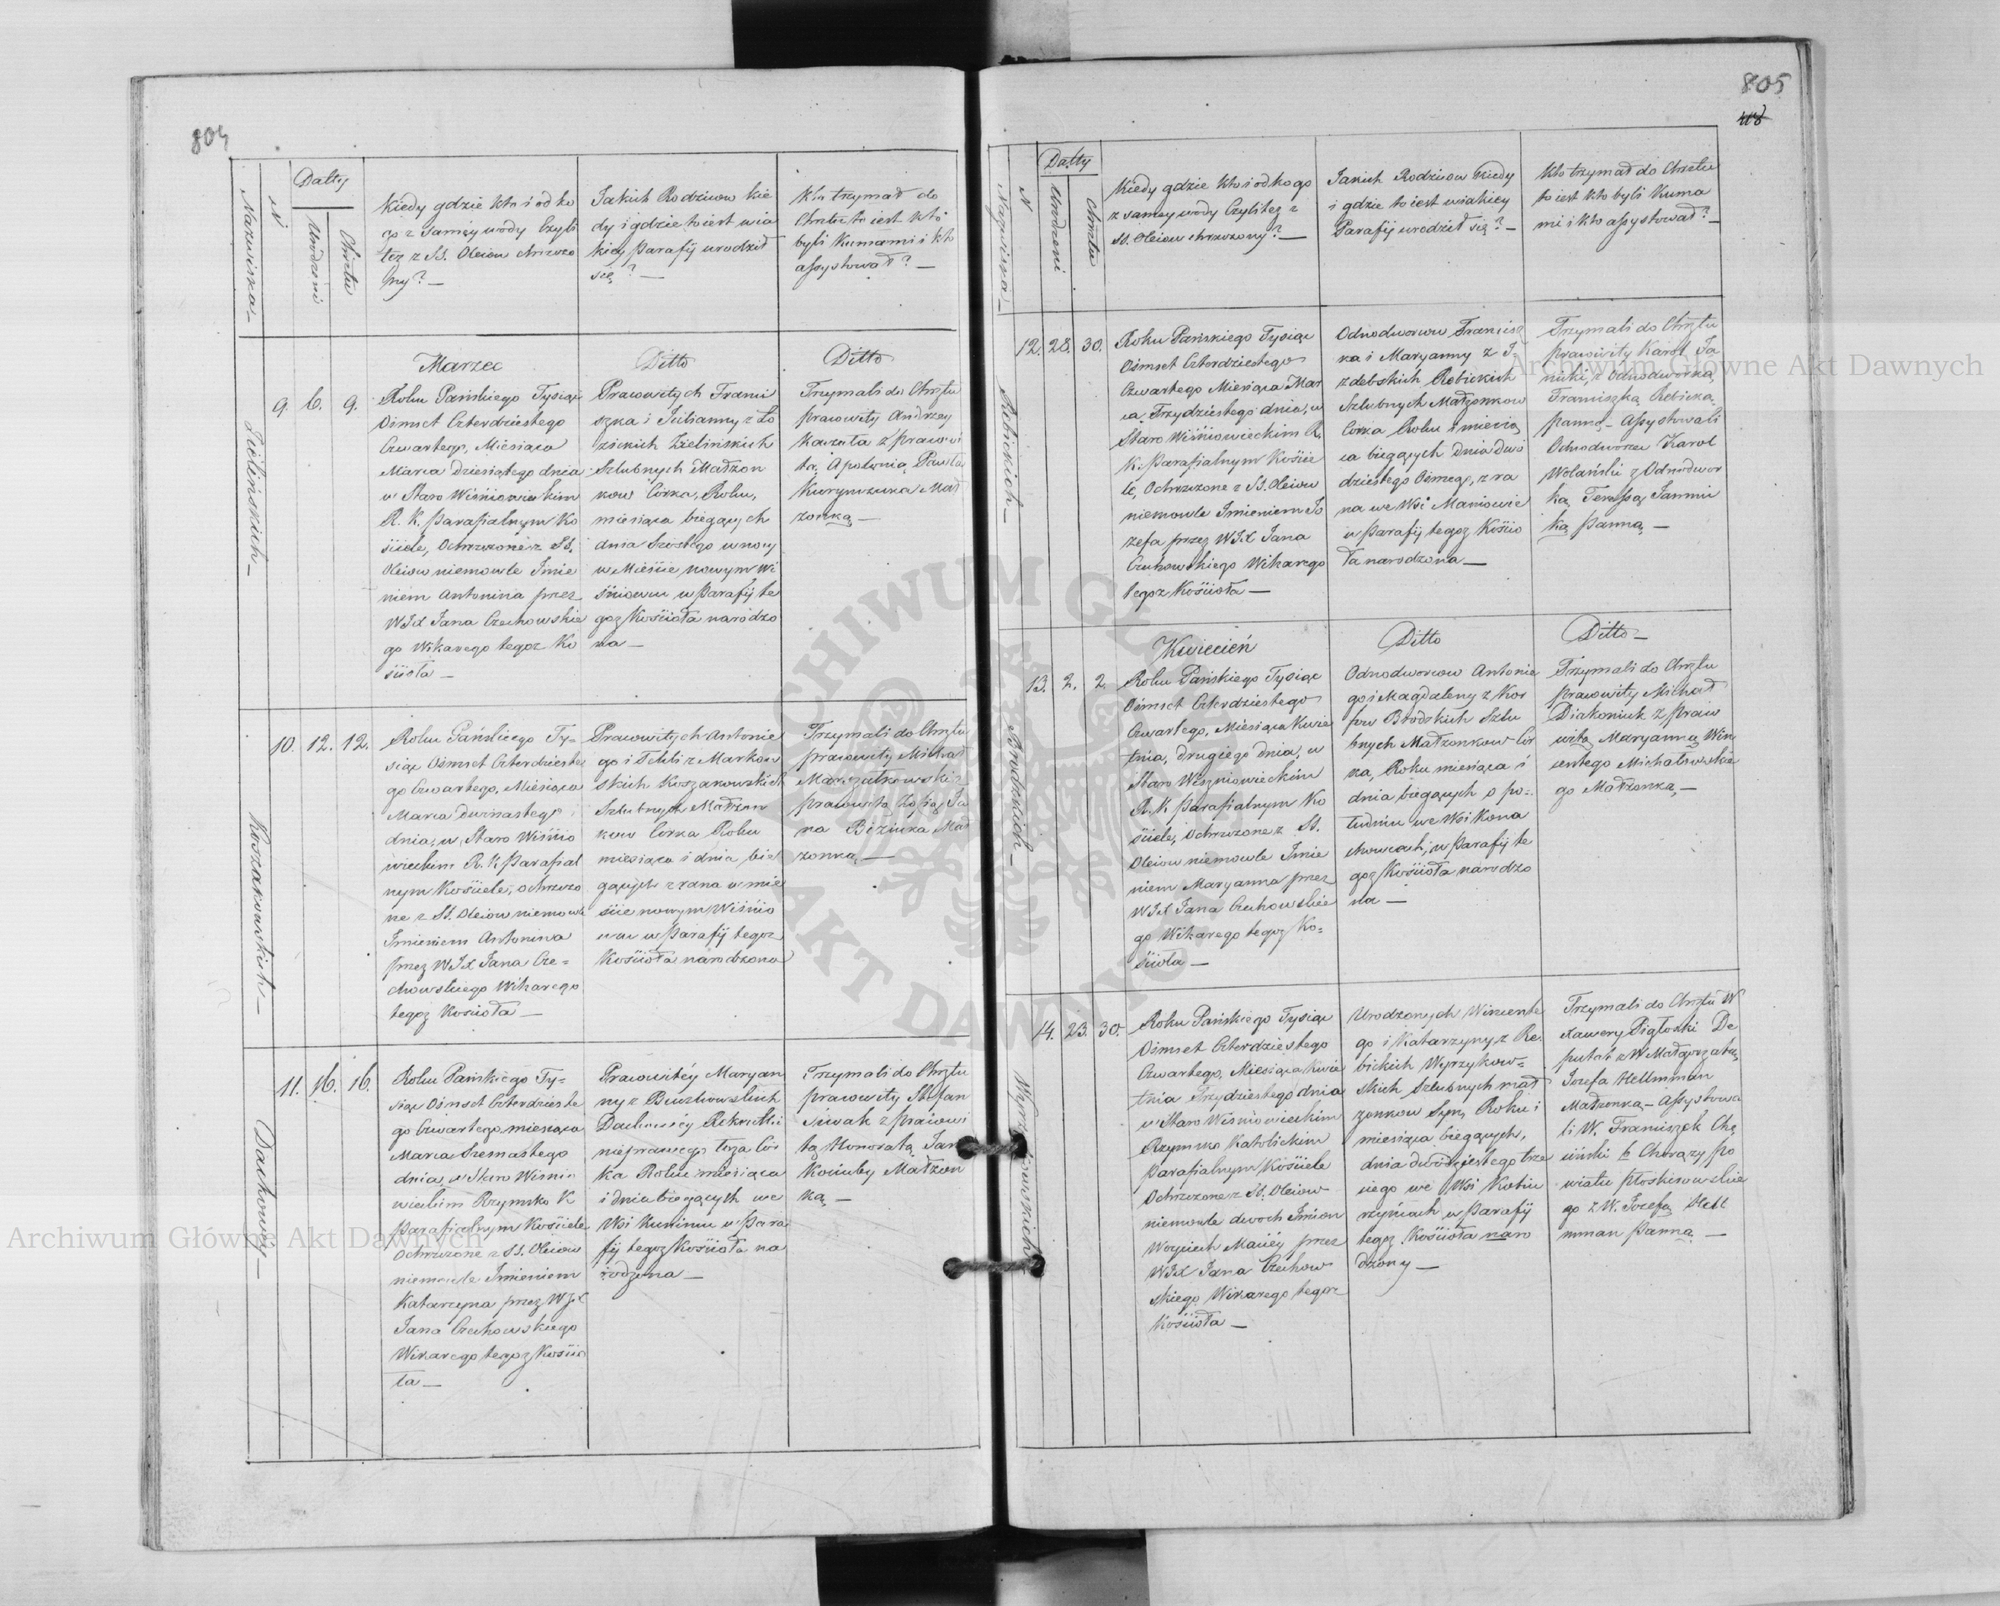 804
Nazwiska —
N
Datty
Urodzeni
Chrztu
Kiedy gdzie kto i od ko
go z samey wody Czyli
też z SS. Oleiow chrzczo
ny? —
Jakich Rodzicow kie
dy i gdzie to iest w ia
kiey Parafij urodził
się? —
Kto trzymał do
Chrztu to iest kto
byli Kumami i kto
assystował? —
Zielińskich —
9.
6.
9.
Marzec
Roku Pańskiego Tysiąc
Ośmset Czterdziestego
Czwartego, Miesiąca
Marca dziesiątego dnia
w Staro Wiśniowieckim
R. K. Parafialnym Ko
ściele, Ochrzczone z SS.
Oleiow niemowle Imie
niem Antonina przez
WJX Jana Czechowskie
go Wikarego tegoż Ko
ścioła —
Ditto
Prawowitych Franci
szka i Julianny z Ło
zickich Zielinskich
Szlubnych Małżon
kow Corka, Roku,
miesiąca bieżących
dnia Szostego w nocy
w Mieście nowym Wi
śniowcu w Parafij te
goż Kościoła narodzo
na —
Ditto
Trzymali do Chrztu
prawowity Andrzey
Kaczała z prawowi
tą Apolonią Pawła
Kuryszuka Mał
żonką —
Koszakowskich —
10.
12.
12.
Roku Pańskiego Ty=
siąc Ośmset Czterdzieste
go Czwartego, Miesiąca
Marca Dwunastego
dnia, w Staro Wiśnio
wieckim R. K. Parafial
nym Kościele, ochrzczo
ne z SS. Oleiow niemowle
Imieniem Antonina
przez WJX Jana Cze=
chowskiego Wikarego
tegoż Kościoła —
Prawowitych Antonie
go i Tekli z Markow
skich Koszakowskich
Szlubnych Małżon
kow Corka Roku
miesiąca i dnia bie
żących z rana w mie
ście nowym Wiśnio
wcu w Parafij tegoż
Kościoła narodzona
Trzymali do Chrztu
prawowity Michał
Marszałkowski z
prawowitą Zofią Ja
na Biziuka Mał
żonką —
Dachowny —
11.
16.
16.
Roku Pańskiego Ty=
siąc Ośmset Czterdzieste
go Czwartego miesiąca
Marca Szesnastego
dnia, w Staro Wiśnio
wieckim Rzymsko K.
Parafialnym Kościele
Ochrzczone z SS. Oleiow
niemowle Imieniem
Katarzyna przez WJX
Jana Czechowskiego
Wikarego tegoż Kościo
ła —
Prawowitey Maryan
ny z
Rekrutki
nieprawego łoża Cor
ka Roku miesiąca
i dnia bieżących we
Wsi w Para
fij tegoż Kościoła na
rodzona —
Trzymali do Chrztu
prawowity Stefan
z prawowi
tą Honoratą Jana
Kociuby Małżon
ką —
805
Nazwiska —
N
Datty
Urodzeni
Chrztu
Kiedy gdzie kto i od kogo
z samey wody Czyli też z
SS. Oleiow chrzczony? —
Jakich Rodzicow kiedy
i gdzie to iest w iakiey
Parafij urodził się? —
Kto trzymał do Chrztu
to iest kto byli Kuma
mi i kto assystował? —
Rebickich —
12.
28.
30.
Roku Pańskiego Tysiąc
Ośmset Czterdziestego
Czwartego Miesiąca Mar
ca, Trzydziestego dnia, w
Staro Wiśniowieckim R.
K. Parafialnym Koście
le, Ochrzczone z SS. Oleiow
niemowle Imieniem Jo
zefa przez WJX Jana
Czechowskiego Wikarego
tegoż Kościoła —
Odnodworcow Francisz
ka i Maryanny z J=
zdebskich Rebickich
Szlubnych Małżonkow
Corka Roku i miesią
ca bieżących dnia dwu
dziestego Osmego, z ra
na we Wsi Maniowie
w Parafij tegoż Kościo
ła narodzona —
Trzymali do Chrztu
prawowity Karol Ja
nicki, z Odnodworką
Franciszką Rebicką
panną — Assystowali
Odnodworzec Karol
Wolański z Odnodwor
ką Teressą Jannic
ką Panną —
Brodzkich —
13.
2.
2.
Kwiecień
Roku Pańskiego Tysiąc
Ośmset Czterdziestego
Czwartego, Miesiąca Kwie
tnia, drugiego dnia, w
Staro Wiszniowieckim
R. K. Parafialnym Ko
ściele, Ochrzczone z SS.
Oleiow niemowle Imie
niem Maryanna przez
WJX Jana Czechowskie
go Wikarego tegoż Ko=
ścioła —
Ditto
Odnodworcow Antonie
go i Magdaleny z Kor
fow Brodskich Szlu
bnych Małżonkow Cor
ka, Roku miesiąca i
dnia bieżących o po=
łudniu we Wsi Kona
chowcach, w Parafij te
goż Kościoła narodzo
na —
Ditto —
Trzymali do Chrztu
prawowity Michał
Diakoniuk z praw
witą Maryanną Win
centego Michałowskie
go Małżonką —
Wyrzykowskich
14.
23.
30.
Roku Pańskiego Tysiąc
Ośmset Czterdziestego
Czwartego, Miesiąca Kwie
tnia Trzydziestego dnia
w Staro Wiśniowieckim
Rzymsko Katolickim
Parafialnym Kościele
Ochrzczone z SS. Oleiow
niemowle dwoch Imion
Woyciech Maciey przez
WJX Jana Czechow
skiego Wikarego tegoż
Kościoła —
Urodzonych Wincente
go i Katarzyny z Re
bickich Wyrzykow=
skich Szlubnych mał
żonkow Syn, Roku i
miesiąca bieżących,
dnia dwudziestego trze
ciego we Wsi Kobiu
rzyńcach w Parafij
tegoż Kościoła naro
dzony —
Trzymali do Chrztu W
Xawery Pigłoski De
putat z W Małgorzatą
Jozefa Hellmman
Małżonką — Assystowa
li W. Franciszek Chę
ciński b. Chorąży Po
wiatu Płoskirowskie
go z W. Jozefą Hell
mman Panną —
ARCHIWUM GŁÓWNE AKT DAWNYCH
Archiwum Główne Akt Dawnych
Archiwum Główne Akt Dawnych